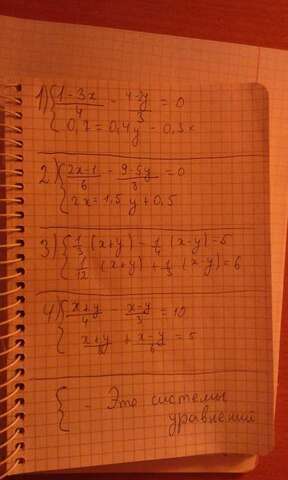 1) { (1-3x)/4 - (4-2y)/3 = 0
0,2 = 0,4y - 0,3x
2) { (2x-1)/6 - (9-5y)/8 = 0
2x = 1,5y + 0,5
3) { 1/3 (x+y) - 1/4 (x-y) = 5
1/12 (x+y) + 1/3 (x-y) = 6
4) { (x+y)/4 - (x-y)/3 = 10
(x+y)/8 + (x-y)/6 = 5
{ - Это системы
уравнений